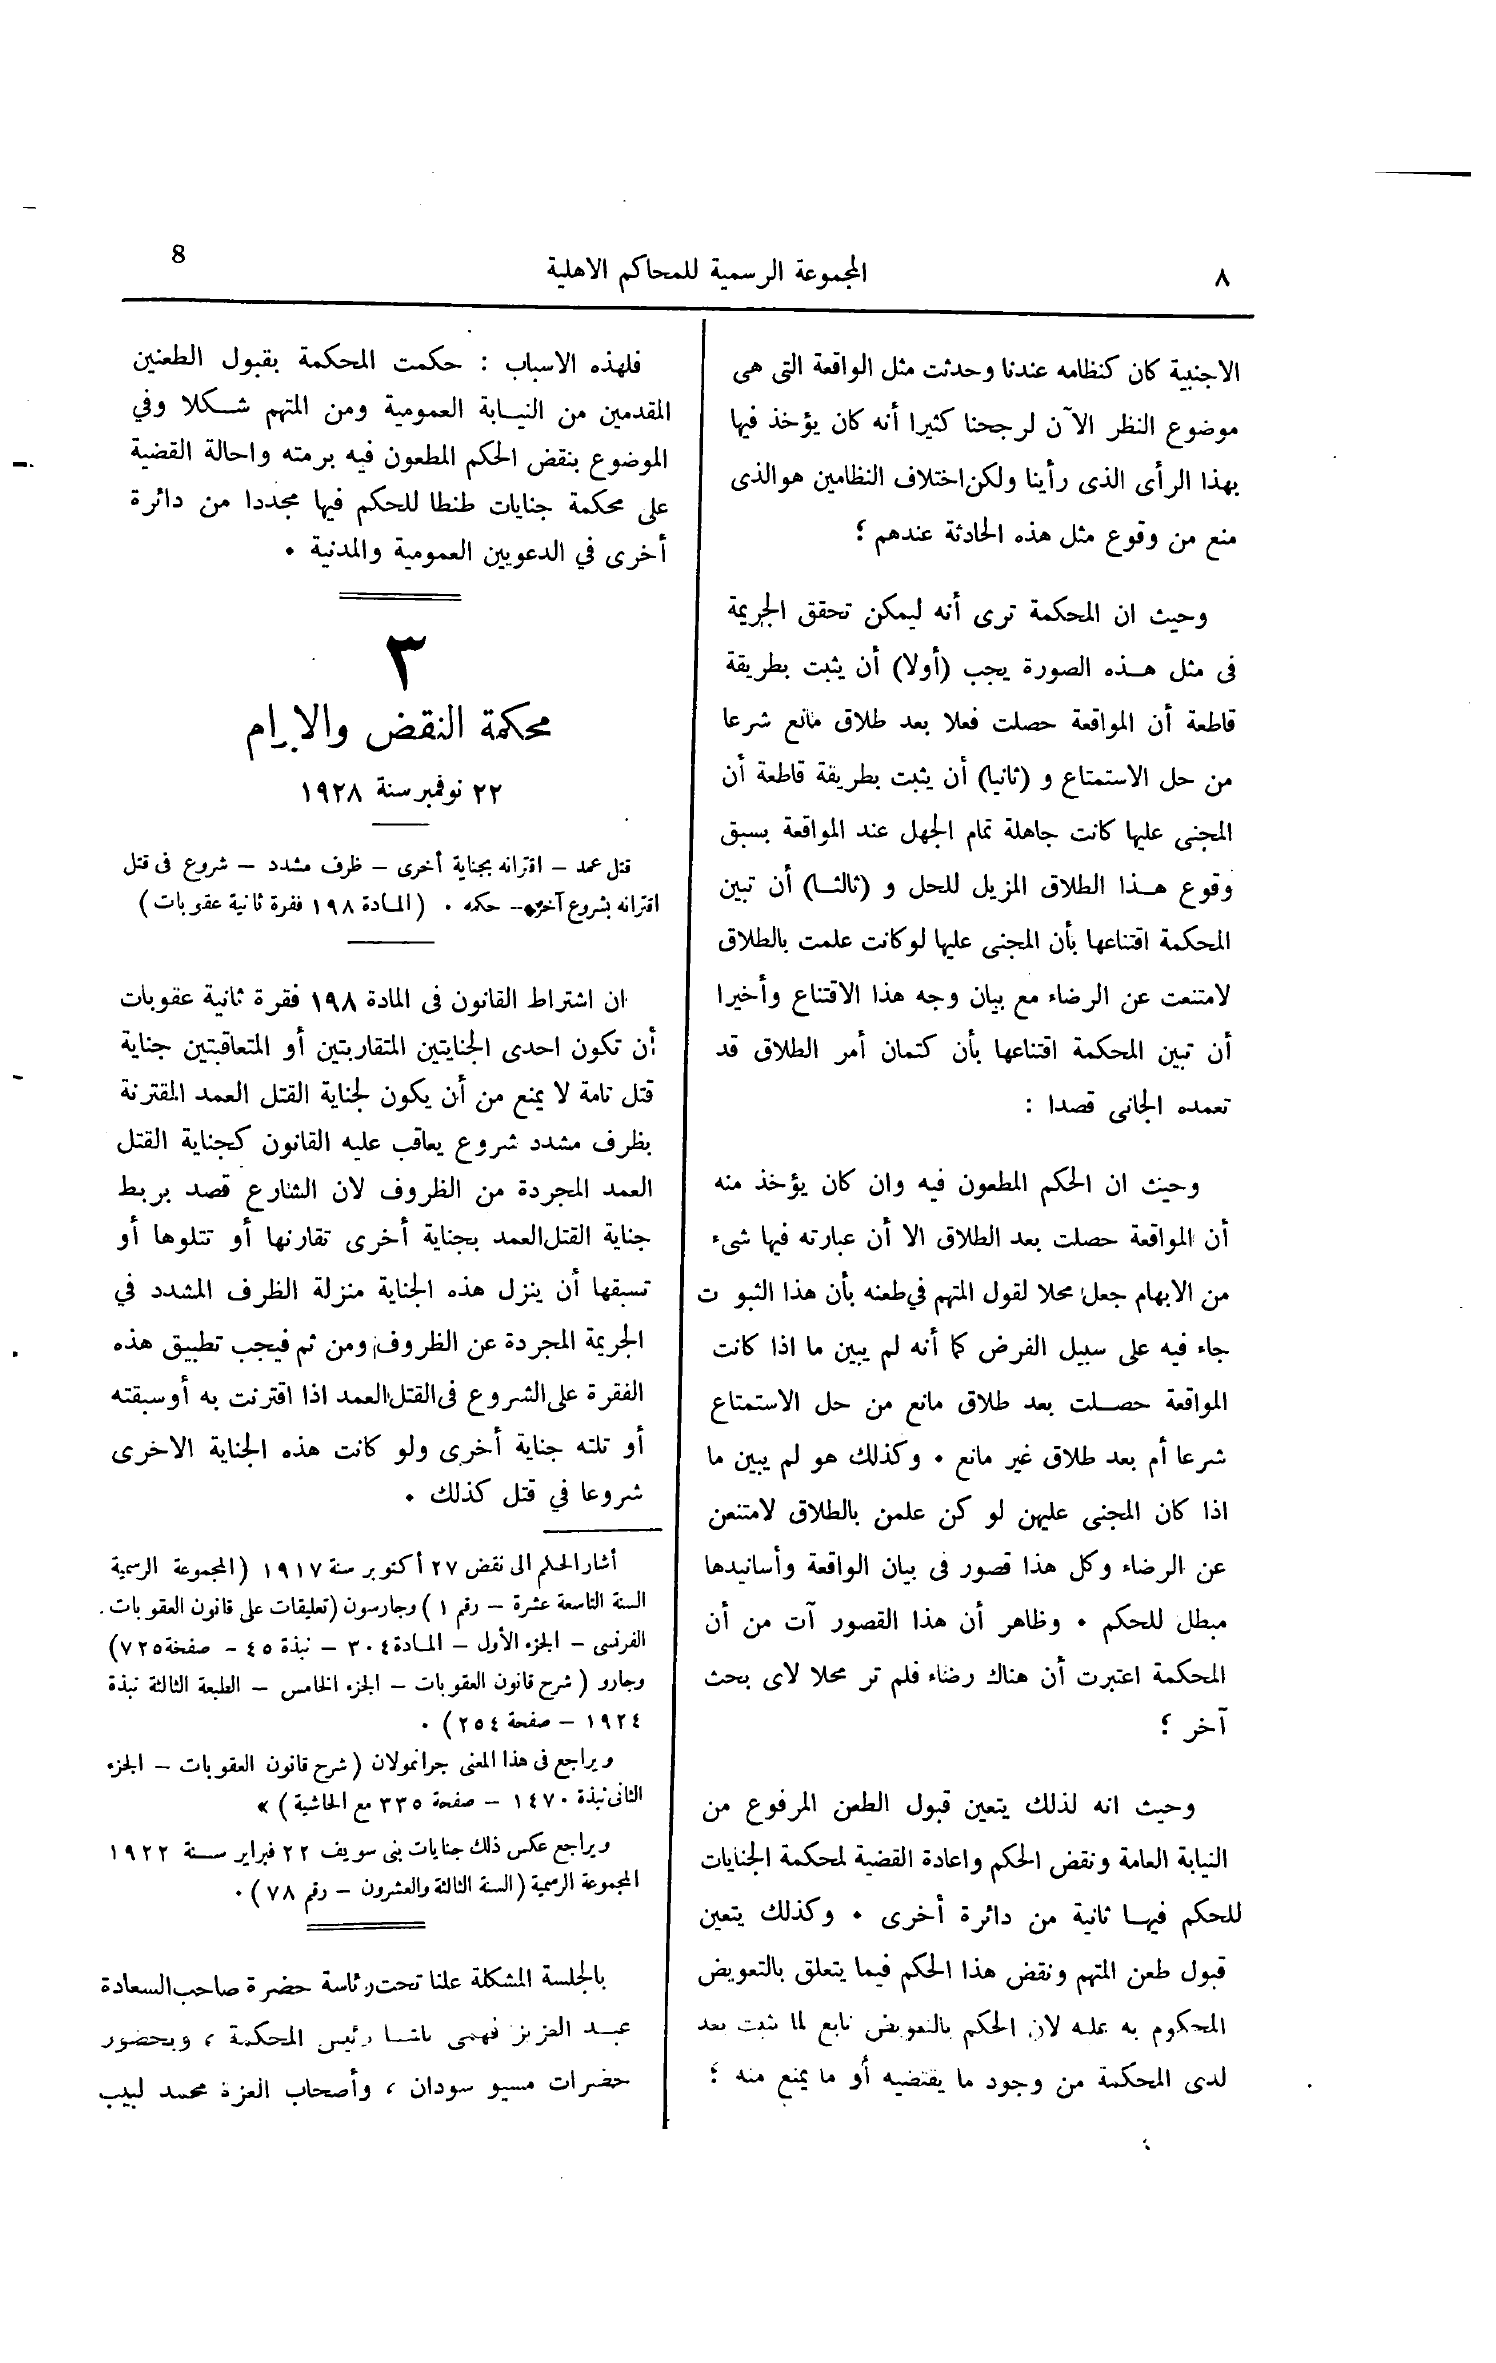 ٨
المجموعة الرسمية للمحاكم الاهلية
8
الاجنبية كان كنظامه عندنا وحدثت مثل الواقعة التى هى
موضوع النظر الآن لرجحنا كثيرا أنه كان يؤخذ فيها
بهذا الرأى الذى رأينا ولكن اختلاف النظامين هو الذى
منع من وقوع مثل هذه الحادثة عندهم ؛
وحيث ان المحكمة ترى أنه ليمكن تحقق الجريمة
فى مثل هذه الصورة يجب (أولا) أن يثبت بطريقة
قاطعة أن المواقعة حصلت فعلا بعد طلاق مانع شرعا
من حل الاستمتاع و (ثانيا) أن يثبت بطريقة قاطعة أن
المجنى عليها كانت جاهلة تمام الجهل عند المواقعة بسبق
وقوع هذا الطلاق المزيل للحل و (ثالثا) أن تبين
المحكمة اقتناعها بأن المجنى عليها لو كانت علمت بالطلاق
لامتنعت عن الرضاء مع بيان وجه هذا الاقتناع وأخيرا
أن تبين المحكمة اقتناعها بأن كتمان أمر الطلاق قد
تعمده الجانى قصدا :
وحيث ان الحكم المطعون فيه وان كان يؤخذ منه
أن المواقعة حصلت بعد الطلاق الا أن عبارته فيها شىء
من الابهام جعل محلا لقول المتهم في طعنه بأن هذا الثبوت
جاء فيه على سبيل الفرض كما أنه لم يبين ما اذا كانت
المواقعة حصلت بعد طلاق مانع من حل الاستمتاع
شرعا أم بعد طلاق غير مانع ٠ وكذلك هو لم يبين ما
اذا كان المجنى عليهن لو كن علمن بالطلاق لامتنعن
عن الرضاء وكل هذا قصور فى بيان الواقعة وأسانيدها
مبطل للحكم ٠ وظاهر أن هذا القصور آت من أن
المحكمة اعتبرت أن هناك رضاء فلم تر محلا لاى بحث
آخر ؛
وحيث انه لذلك يتعين قبول الطعن المرفوع من
النيابة العامة ونقض الحكم واعادة القضية لمحكمة الجنايات
للحكم فيها ثانية من دائرة أخرى ٠ وكذلك يتعين
قبول طعن المتهم ونقض هذا الحكم فيما يتعلق بالتعويض
المحكوم به عليه لان الحكم بالتعويض تابع لما يثبت بعد
لدى المحكمة من وجود ما يقتضيه أو ما يمنع منه ؛
فلهذه الاسباب : حكمت المحكمة بقبول الطعنين
المقدمين من النيابة العمومية ومن المتهم شكلا وفي
الموضوع بنقض الحكم المطعون فيه برمته واحالة القضية
على محكمة جنايات طنطا للحكم فيها مجددا من دائرة
أخرى في الدعويين العمومية والمدنية ٠
٣
محكمة النقض والابرام
٢٢ نوفمبر سنة ١٩٢٨
قتل عمد – اقترانه بجناية أخرى – ظرف مشدد – شروع فى قتل
اقترانه بشروع آخر – حكمه ٠ (المادة ١٩٨ فقرة ثانية عقوبات)
ان اشتراط القانون فى المادة ١٩٨ فقرة ثانية عقوبات
أن تكون احدى الجنايتين المتقاربتين أو المتعاقبتين جناية
قتل تامة لا يمنع من أن يكون لجناية القتل العمد المقترنة
بظرف مشدد شروع يعاقب عليه القانون كجناية القتل
العمد المجردة من الظروف لان الشارع قصد بربط
جناية القتل العمد بجناية أخرى تقارنها أو تتلوها أو
تسبقها أن ينزل هذه الجناية منزلة الظرف المشدد في
الجريمة المجردة عن الظروف ومن ثم فيجب تطبيق هذه
الفقرة على الشروع فى القتل العمد اذا اقترنت به أو سبقته
أو تلته جناية أخرى ولو كانت هذه الجناية الاخرى
شروعا في قتل كذلك ٠
أشار الحكم الى نقض ٢٧ أكتوبر سنة ١٩١٧ (المجموعة الرسمية
السنة التاسعة عشرة – رقم ١) وجارسون (تعليقات على قانون العقوبات
الفرنسى – الجزء الأول – المادة ٣٠٤ – نبذة ٤٥ – صفحة ٧٢٥)
وجارو (شرح قانون العقوبات – الجزء الخامس – الطبعة الثالثة نبذة
١٩٢٤ – صفحة ٢٥٤) ٠
ويراجع فى هذا المعنى جرانمولان (شرح قانون العقوبات – الجزء
الثانى نبذة ١٤٧٠ – صفحة ٣٣٥ مع الحاشية) »
ويراجع عكس ذلك جنايات بنى سويف ٢٢ فبراير سنة ١٩٢٢
المجموعة الرسمية (السنة الثالثة والعشرون – رقم ٧٨) ٠
بالجلسة المشكلة علنا تحت رئاسة حضرة صاحب السعادة
عبد العزيز فهمى باشا رئيس المحكمة ، وبحضور
حضرات مسيو سودان ، وأصحاب العزة محمد لبيب